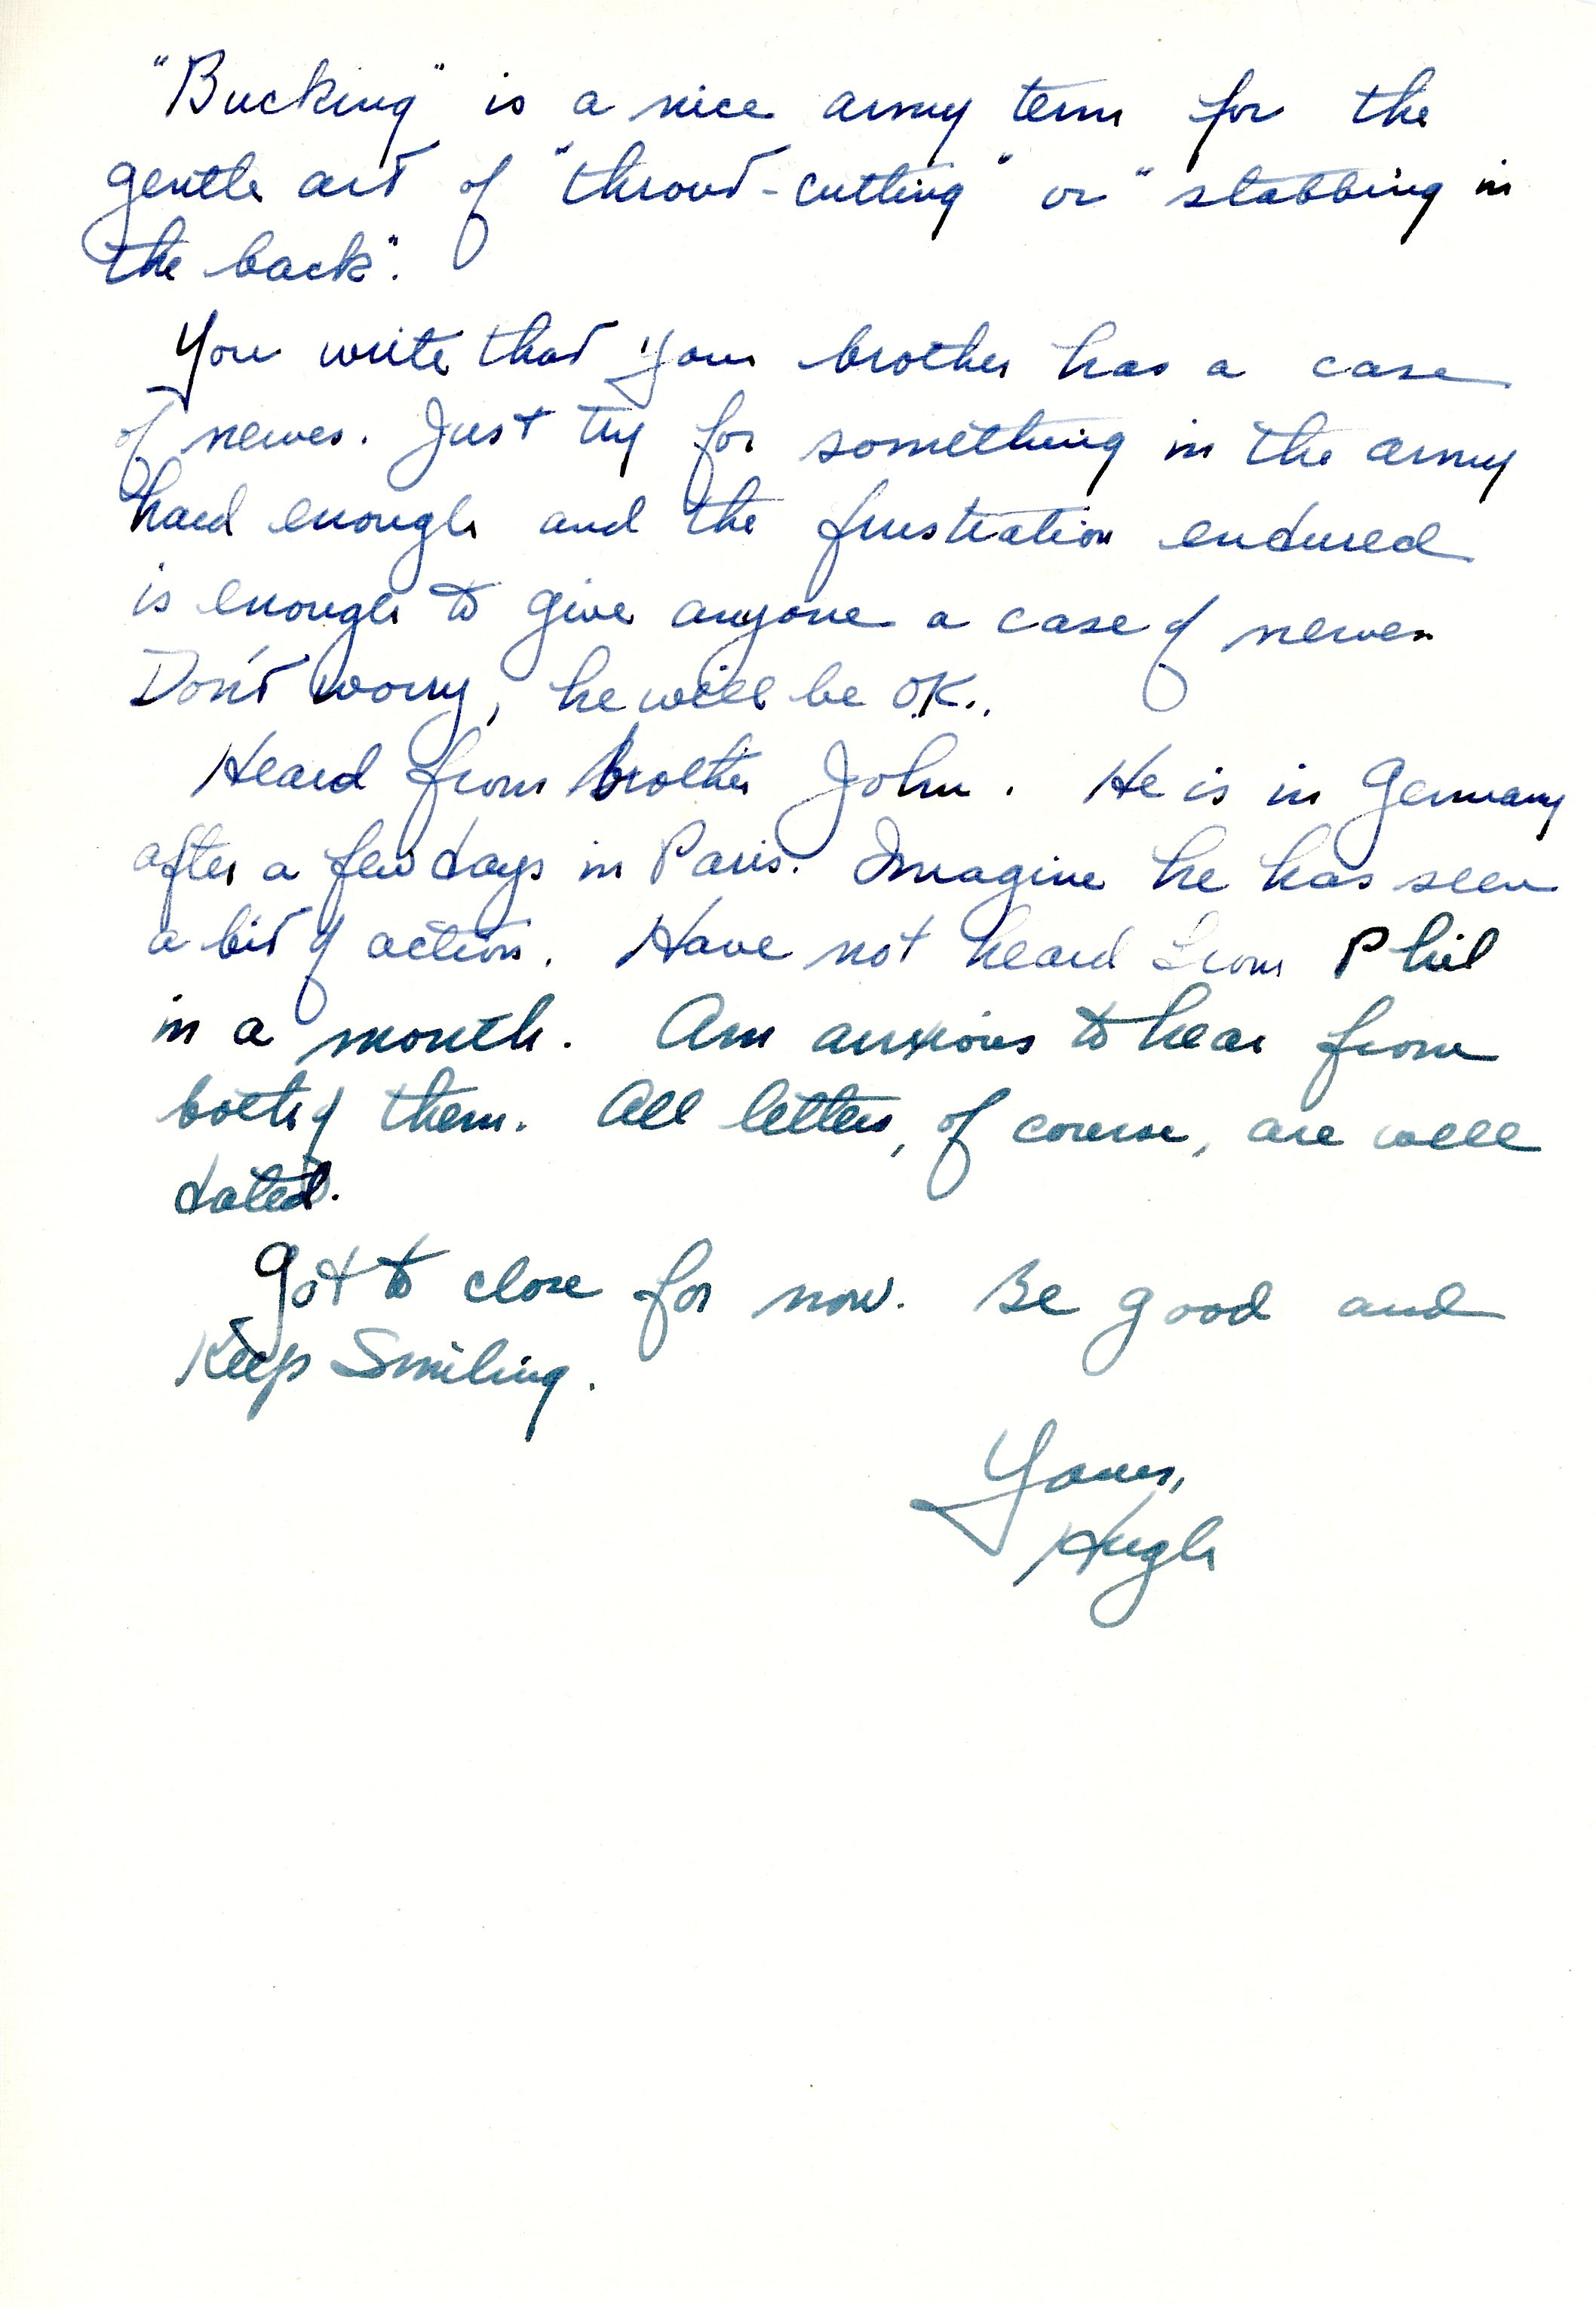 "Bucking" is a nice army term for the
gentle art of "throat-cutting" or "stabbing in
the back".
You write that your brother has a case
of nerves. Just try for something in the army
hard enough and the frustration endured
is enough to give anyone a case of nerves
Don't worry, he will be OK..
Heard from brother John. He is in Germany
after a few days in Paris. Imagine he has seen
a bit of action. Have not heard from Phil
in a month. Am anxious to hear from
both of them. All letters, of course, are well
dated.
Got to close for now. Be good and
Keep Smiling.
Yours,
Hugh